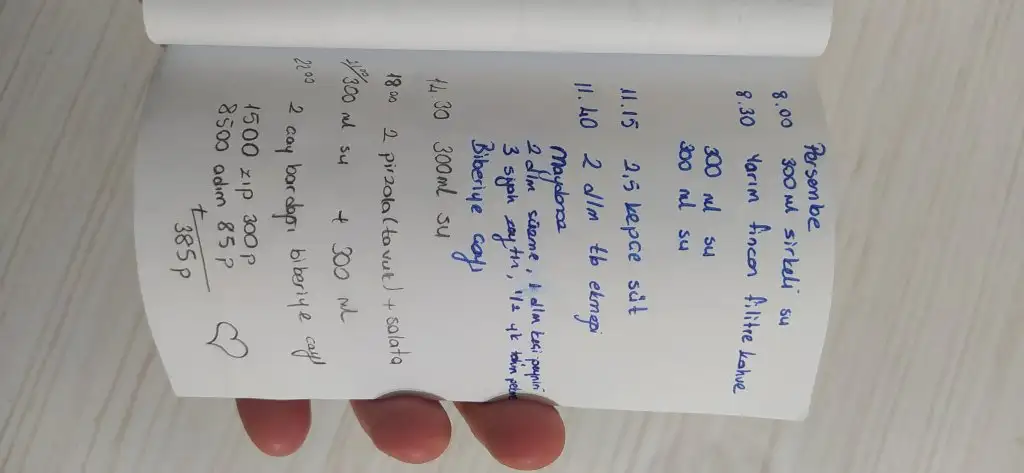 Perşembe
8.00 300 ml sirkeli su
8.30 Yarım fincan filitre kahve
300 ml su
300 ml su
11.15 2,5 kepçe süt
11.40 2 dlm tb ekmeği
Maydanoz
2 dlm süzme, 1 dlm keçi peyniri
3 siyah zaytin, 1/2 yk
Biberiye çayı
14.30 300ml su
18.00 2 pirzola (tavuk) + salata
300 ml su + 300 ml
22.00 2 çay bardağı biberiye çayı
1500 zıp 300 p
8500 adım 85 p
+
385 p